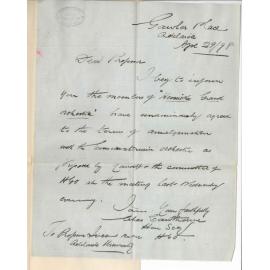 Gawler Place
Adelaide
Apl 29/98
Dear Professor
I beg to inform
you the members of "Heinicke's Grand
Orchestra" have unanimously agreed
to the terms of amalgamation
with the Conservatorium orchestra as
proposed by yourself & the committee of
HGO at the meeting last Wednesday
evening.
I am Yours faithfully
Chas Cawthorne
Hon Secy
HGO
To Professor Ives
Adelaide University